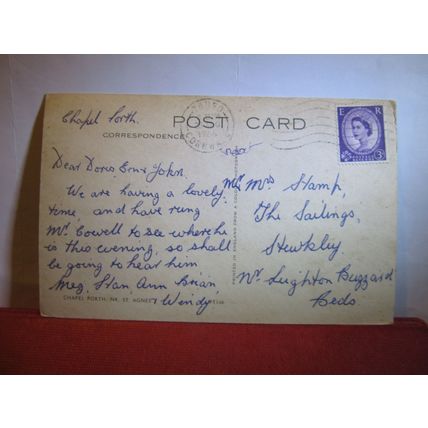 Chapel Porth.
POST CARD
CORRESPONDENCE
E R
3D
Dear Doris, Eric & John.
We are having a lovely
time, and have rung
Mr. Cowell to see where he
is this evening, so shall
be going to hear him
Meg, Stan, Ann Brian,
Wendy
CHAPEL PORTH, NR. ST. AGNES
Mr. Mrs Stamp,
The Sailings,
Stewkley
Nr. Leighton Buzzard
Beds